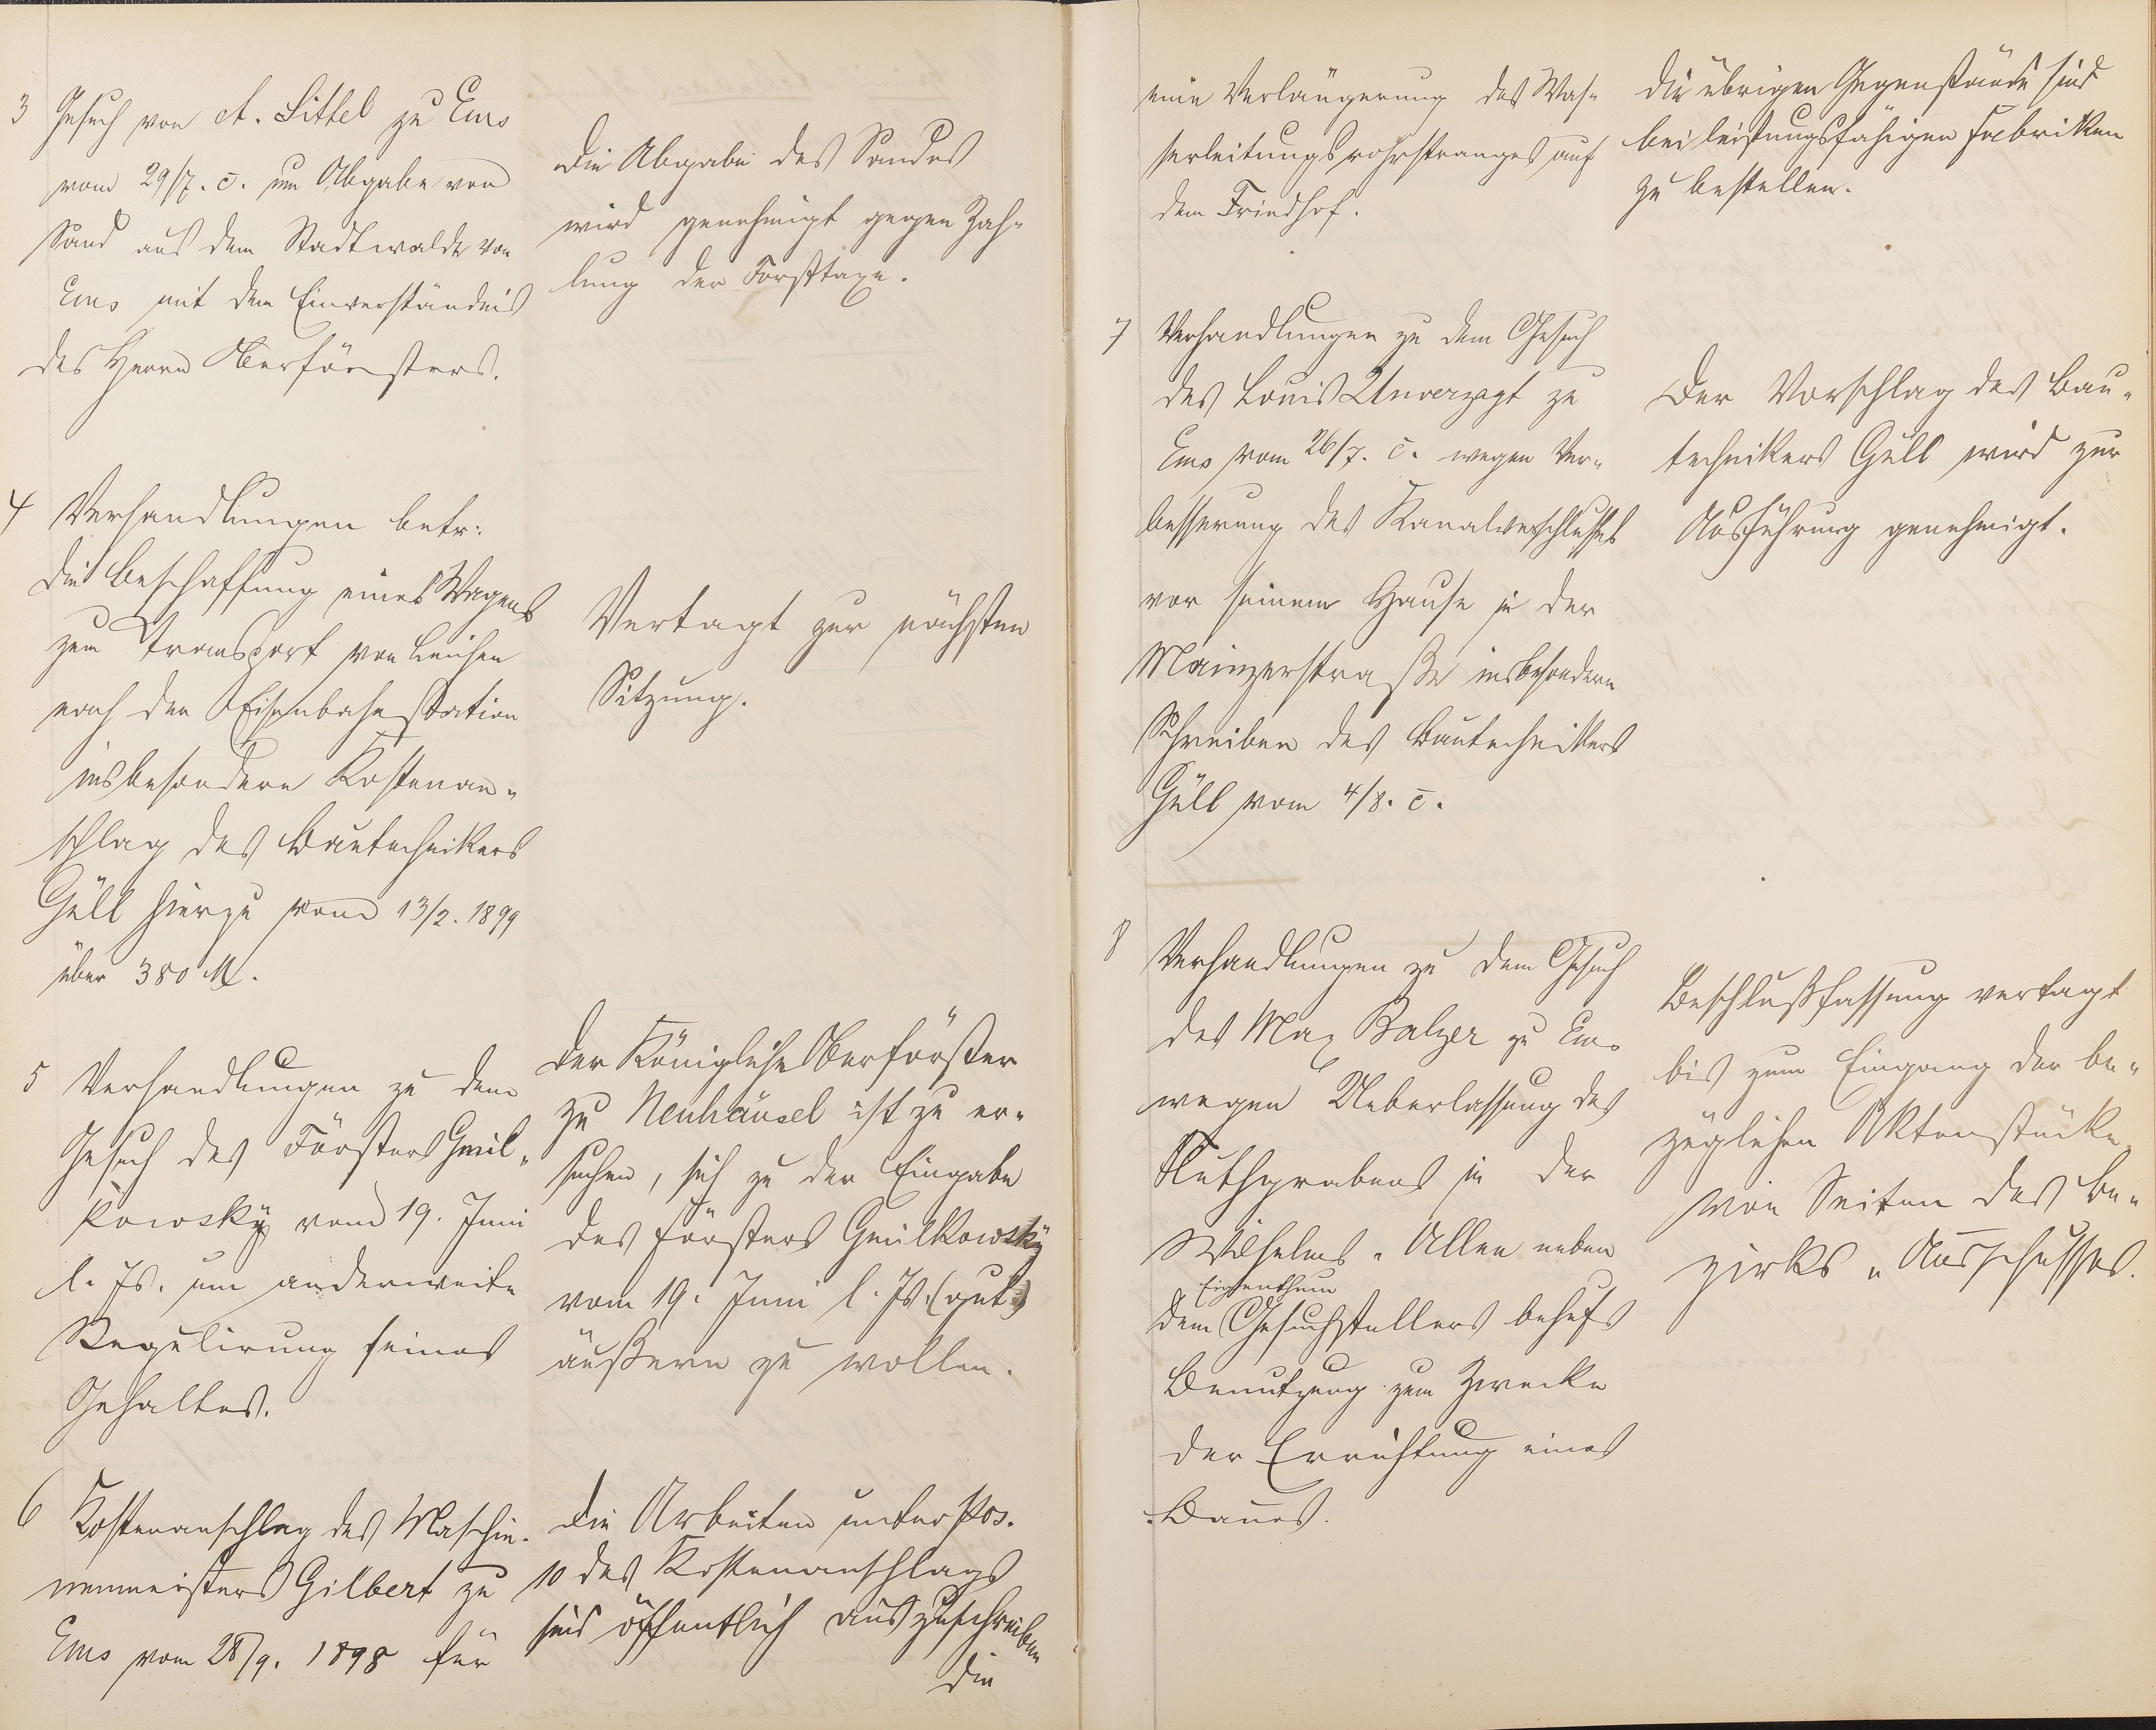 3 Gesuch von A. Sittel zu Ems
vom 29/7. c. um Abgabe von
Sand aus dem Stadtwalde von
Ems mit dem Einverständnis
des Herrn Oberförsters.
Die Abgabe des Sandes
wird genehmigt gegen Zah-
lung der Forsttaxe.
4 Verhandlungen betr.
die Beschaffung eines Wagens
zum Transport von Leichen
nach der Eisenbahnstation
insbesondere Kostenan-
schlag des Bautechnikers
Güll hierzu vom 13/2. 1899
über 380 M.
Vertagt zur nächsten
Sitzung.
5 Verhandlungen zu dem
Gesuch des Försters Gmil-
kowsky vom 19. Juni
l. Js. um anderweite
Regulirung seines
Gehaltes.
Der Königliche Oberförster
zu Neuhäusel ist zu er-
suchen, sich zu der Eingabe
des Försters Gmilkowsky
vom 19. Juni l. Js. (gut.)
äußern zu wollen.
6 Kostenanschlag des Maschi-
nenmeisters Gilbert zu
Ems vom 28/9. 1898 für
Die Arbeiten unter Pos.
10 des Kostenanschlags
sind öffentlich auszuschreiben
die
eine Verlängerung des Was-
serleitungsrohrstranges auf
dem Friedhof.
die übrigen Gegenstände sind
bei leistungsfähigen Fabriken
zu bestellen.
7 Verhandlungen zu dem Gesuch
des Louis Unverzagt zu
Ems vom 26/7. c. wegen Ver-
besserung des Kanalverschlusses
vor seinem Hause in der
Mainzerstraße insbesondere
Schreiben des Bautechnikers
Güll vom 4/8. c.
Der Vorschlag des Bau-
technikers Güll wird zur
Ausführung genehmigt.
8 Verhandlungen zu dem Gesuch
des Max Balzer zu Ems
wegen Ueberlassung des
Fluthgrabens in der
Wilhelms-Allee neben
Eigenthum
dem Gesuchstellers behufs
Benutzung zum Zwecke
der Errichtung eines
Baues.
Beschlußfassung vertagt
bis zum Eingang der be-
züglichen Aktenstücke
von Seiten des Be-
zirks-Ausschusses.